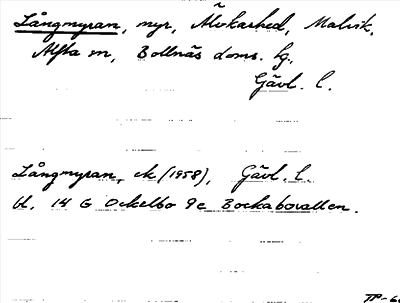 Långmyran, myr, Älvkarhed, Malvik,
Alfta sn, Bollnäs doms. hg,
Gävl. l.
Långmyran, ek (1958), Gävl. l.
bl. 14 G Ockelbo 9c Bockabovallen.